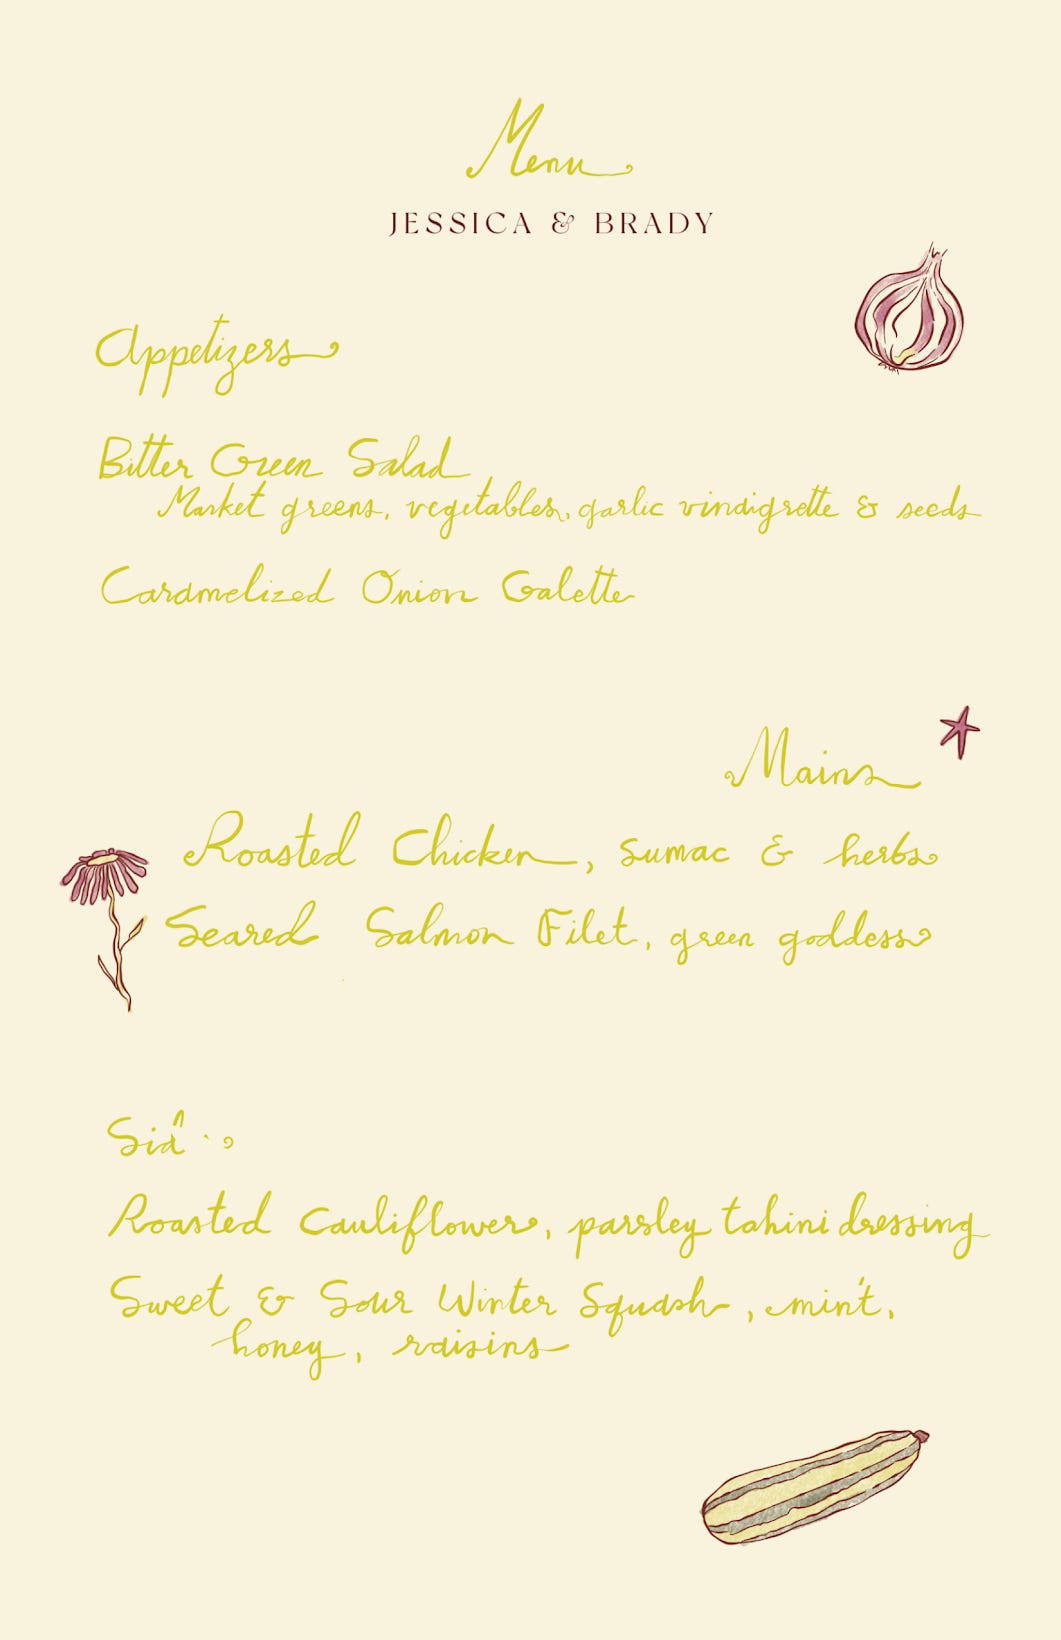 Menu
JESSICA & BRADY
Appetizers
Bitter Green Salad
Market greens, vegetables, garlic vindigrette & seeds
Caramelized Onion Galette
Mains
Roasted Chicken, sumac & herbs
Seared Salmon Filet, green goddess
Roasted Cauliflower, parsley tahini dressing
Sweet & Sour Winter Squash, mint,
honey, raisins